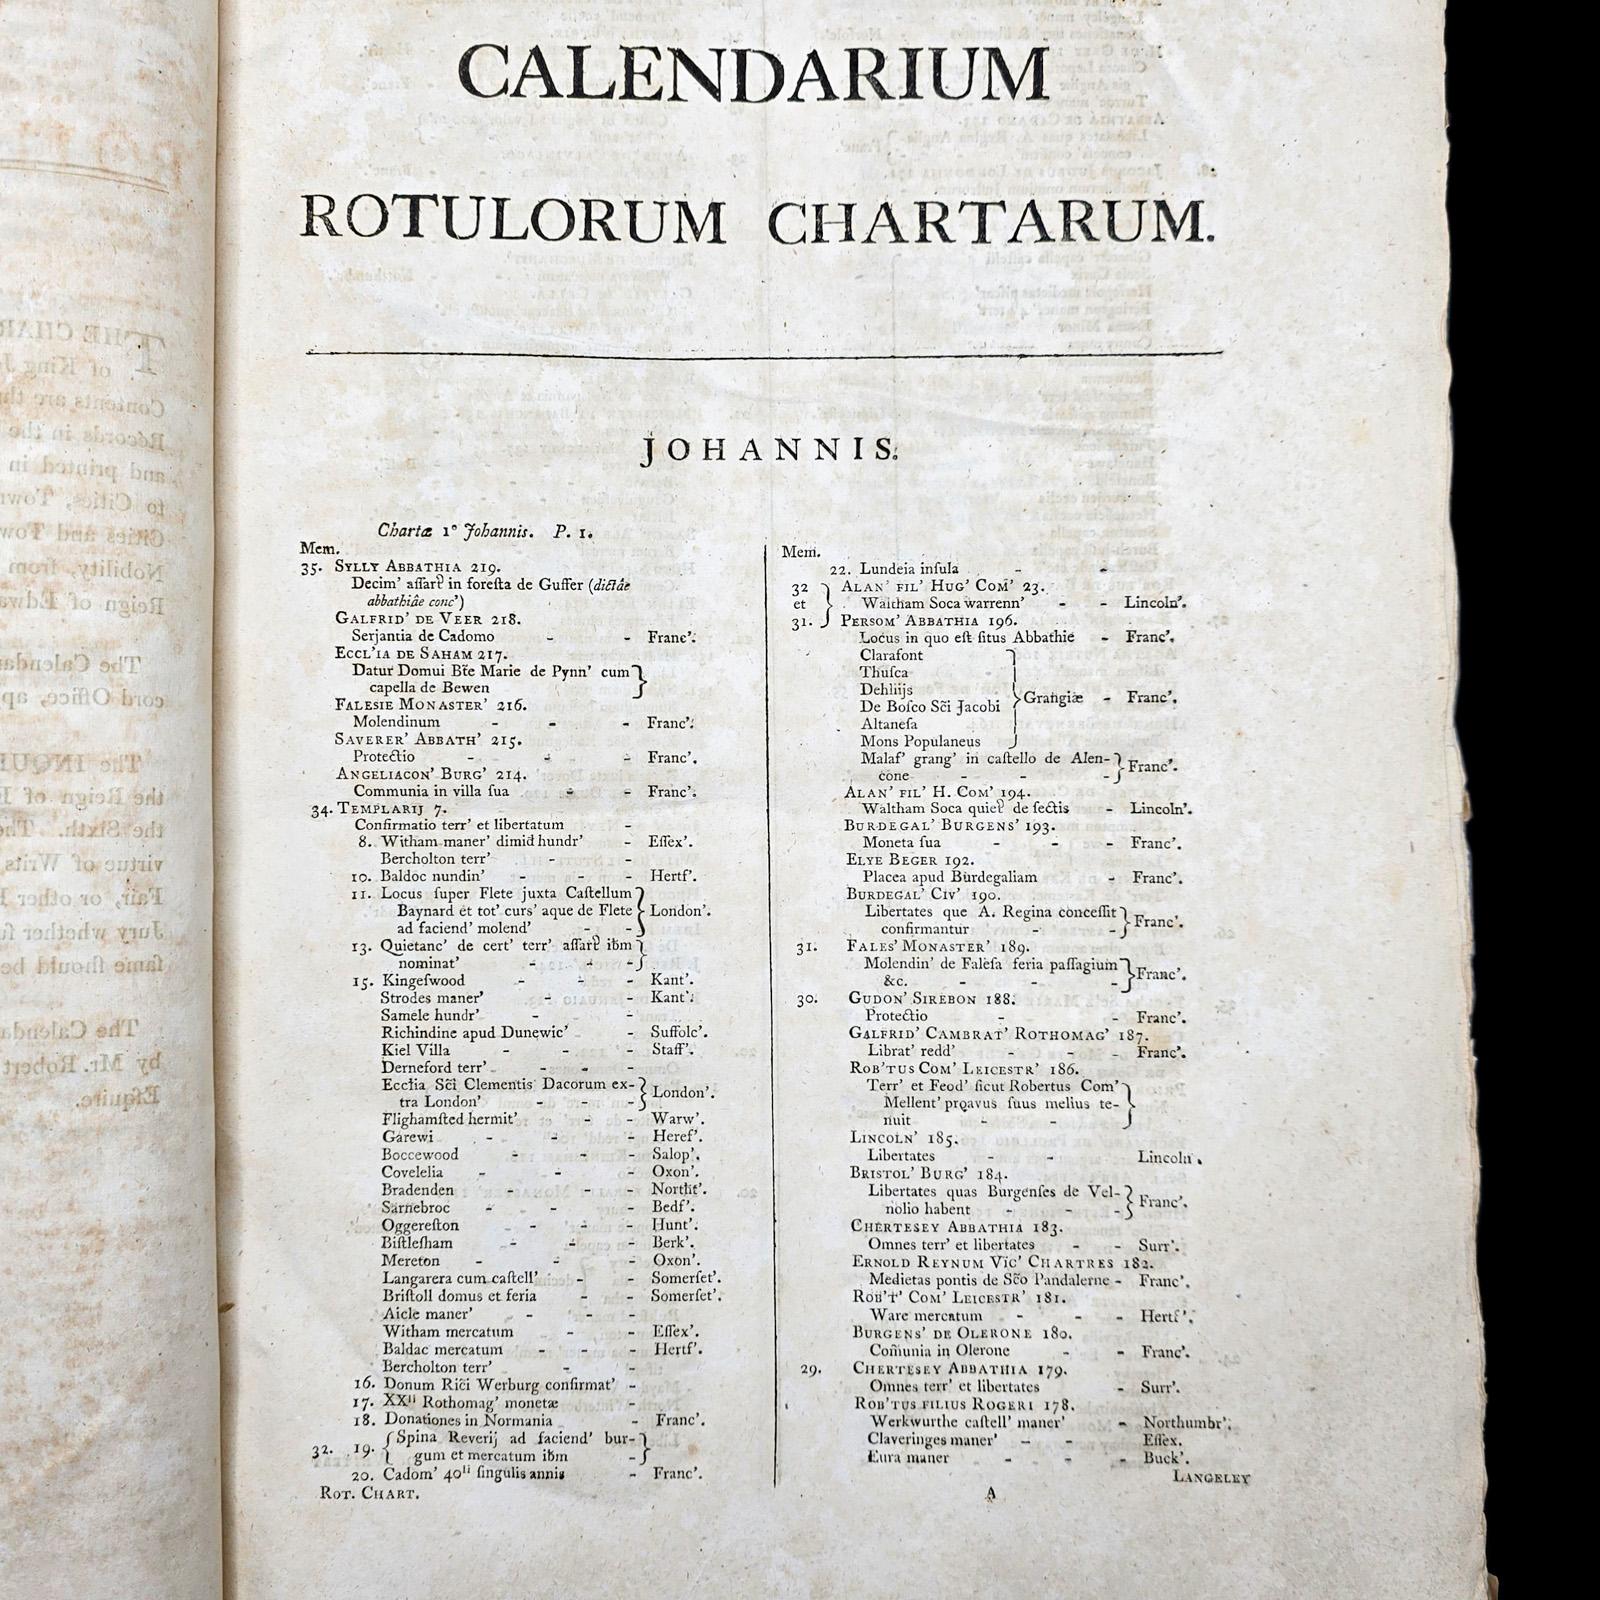 CALENDARIUM
ROTULORUM CHARTARUM.
JOHANNIS.
Chartæ 1° Johannis. P. 1.
Mem.
35. SYLLY ABBATHIA 219.
Decim' aſſart̃ in foreſta de Guffer (dictâe
abbathiâe conc')
GALFRID' DE VEER 218.
Serjantia de Cadomo - - Franc'.
ECCL'IA DE SAHAM 217.
Datur Domui Bt̃e Marie de Pynn' cum
capella de Bewen
FALESIE MONASTER' 216.
Molendinum - - - Franc'.
SAVERER' ABBATH' 215.
Protectio - - - Franc'.
ANGELIACON' BURG' 214.
Communia in villa ſua - - Franc'.
34. TEMPLARIJ 7.
Confirmatio terr' et libertatum -
8. Witham maner' dimid hundr' - Eſſex'.
Bercholton terr' - -
10. Baldoc nundin' - - - Hertf'.
11. Locus ſuper Flete juxta Caſtellum
Baynard et tot' curs' aque de Flete London'.
ad faciend' molend' - -
13. Quietanc' de cert' terr' aſſart̃ ibm
nominat' - - -
15. Kingeſwood - - - Kant'.
Strodes maner' - - Kant'.
Samele hundr' - -
Richindine apud Dunewic' - Suffolc'.
Kiel Villa - - - Staff'.
Derneford terr' - -
Eccĩia Sc̃i Clementis Dacorum ex-
tra London' - - - London'.
Flighamſted hermit' - - Warw'.
Garewi - - - Heref'.
Boccewood - - - Salop'.
Covelelia - - - Oxon'.
Bradenden - - - North̃t'.
Sarnebroc - - - Bedf'.
Oggereſton - - - Hunt'.
Biſtleſham - - - Berk'.
Mereton - - - Oxon'.
Langarera cum caſtell' - - Somerſet'.
Briſtoll domus et feria - - Somerſet'.
Aicle maner' - - -
Witham mercatum - - Eſſex'.
Baldac mercatum - - - Hertf'.
Bercholton terr' - -
16. Donum Ric̃i Werburg confirmat' -
17. XXˡⁱ Rothomag' monetæ -
18. Donationes in Normania - Franc'.
32. 19. Spina Reverij ad faciend' bur-
gum et mercatum ibm
20. Cadom' 40ˡⁱ ſingulis annis - Franc'.
ROT. CHART.
Mem.
22. Lundeia inſula - -
32 ALAN' FIL' HUG' COM̃ 23.
et Waltham Soca warrenn' - - Lincoln'.
31. PERSOM' ABBATHIA 196.
Locus in quo eſt ſitus Abbathie - Franc'.
Clarafont
Thuſca
Dehliijs
De Boſco Sc̃i Jacobi Grangiæ - Franc'.
Altaneſa
Mons Populaneus
Malaſ' grang' in caſtello de Alen-
cone - - - Franc'.
ALAN' FIL' H. COM' 194.
Waltham Soca quiet̃ de ſectis - Lincoln'.
BURDEGAL' BURGENS' 193.
Moneta ſua - - - Franc'.
ELYE BEGER 192.
Placea apud Burdegaliam - Franc'.
BURDEGAL' CIV' 190.
Libertates que A. Regina conceſſit
confirmantur - - Franc'.
31. FALES' MONASTER' 189.
Molendin' de Faleſa feria paſſagium
&c. - - - Franc'.
30. GUDON' SIREBON 188.
Protectio - - Franc'.
GALFRID' CAMBRAT' ROTHOMAG' 187.
Librat' redd' - - - Franc'.
ROB'TUS COM' LEICESTR' 186.
Terr' et Feod' ſicut Robertus Com'
Mellent' proavus ſuus melius te-
nuit - -
LINCOLN' 185.
Libertates - - Lincoln.
BRISTOL' BURG' 184.
Libertates quas Burgenſes de Vel-
nolio habent - - - Franc'.
CHERTESEY ABBATHIA 183.
Omnes terr' et libertates - - Surr'.
ERNOLD REYNUM VIC' CHARTRES 182.
Medietas pontis de Sc̃o Pandalerne - Franc'.
ROB'T' COM' LEICESTR' 181.
Ware mercatum - - - Hertf'.
BURGENS' DE OLERONE 180.
Com̃unia in Olerone - - Franc'.
29. CHERTESEY ABBATHIA 179.
Omnes terr' et libertates - Surr'.
ROB'TUS FILIUS ROGERI 178.
Werkwurthe caſtell' maner' - Northumbr'.
Claveringes maner' - - Eſſex.
Eura maner - - - Buck'.
LANGELEY
A